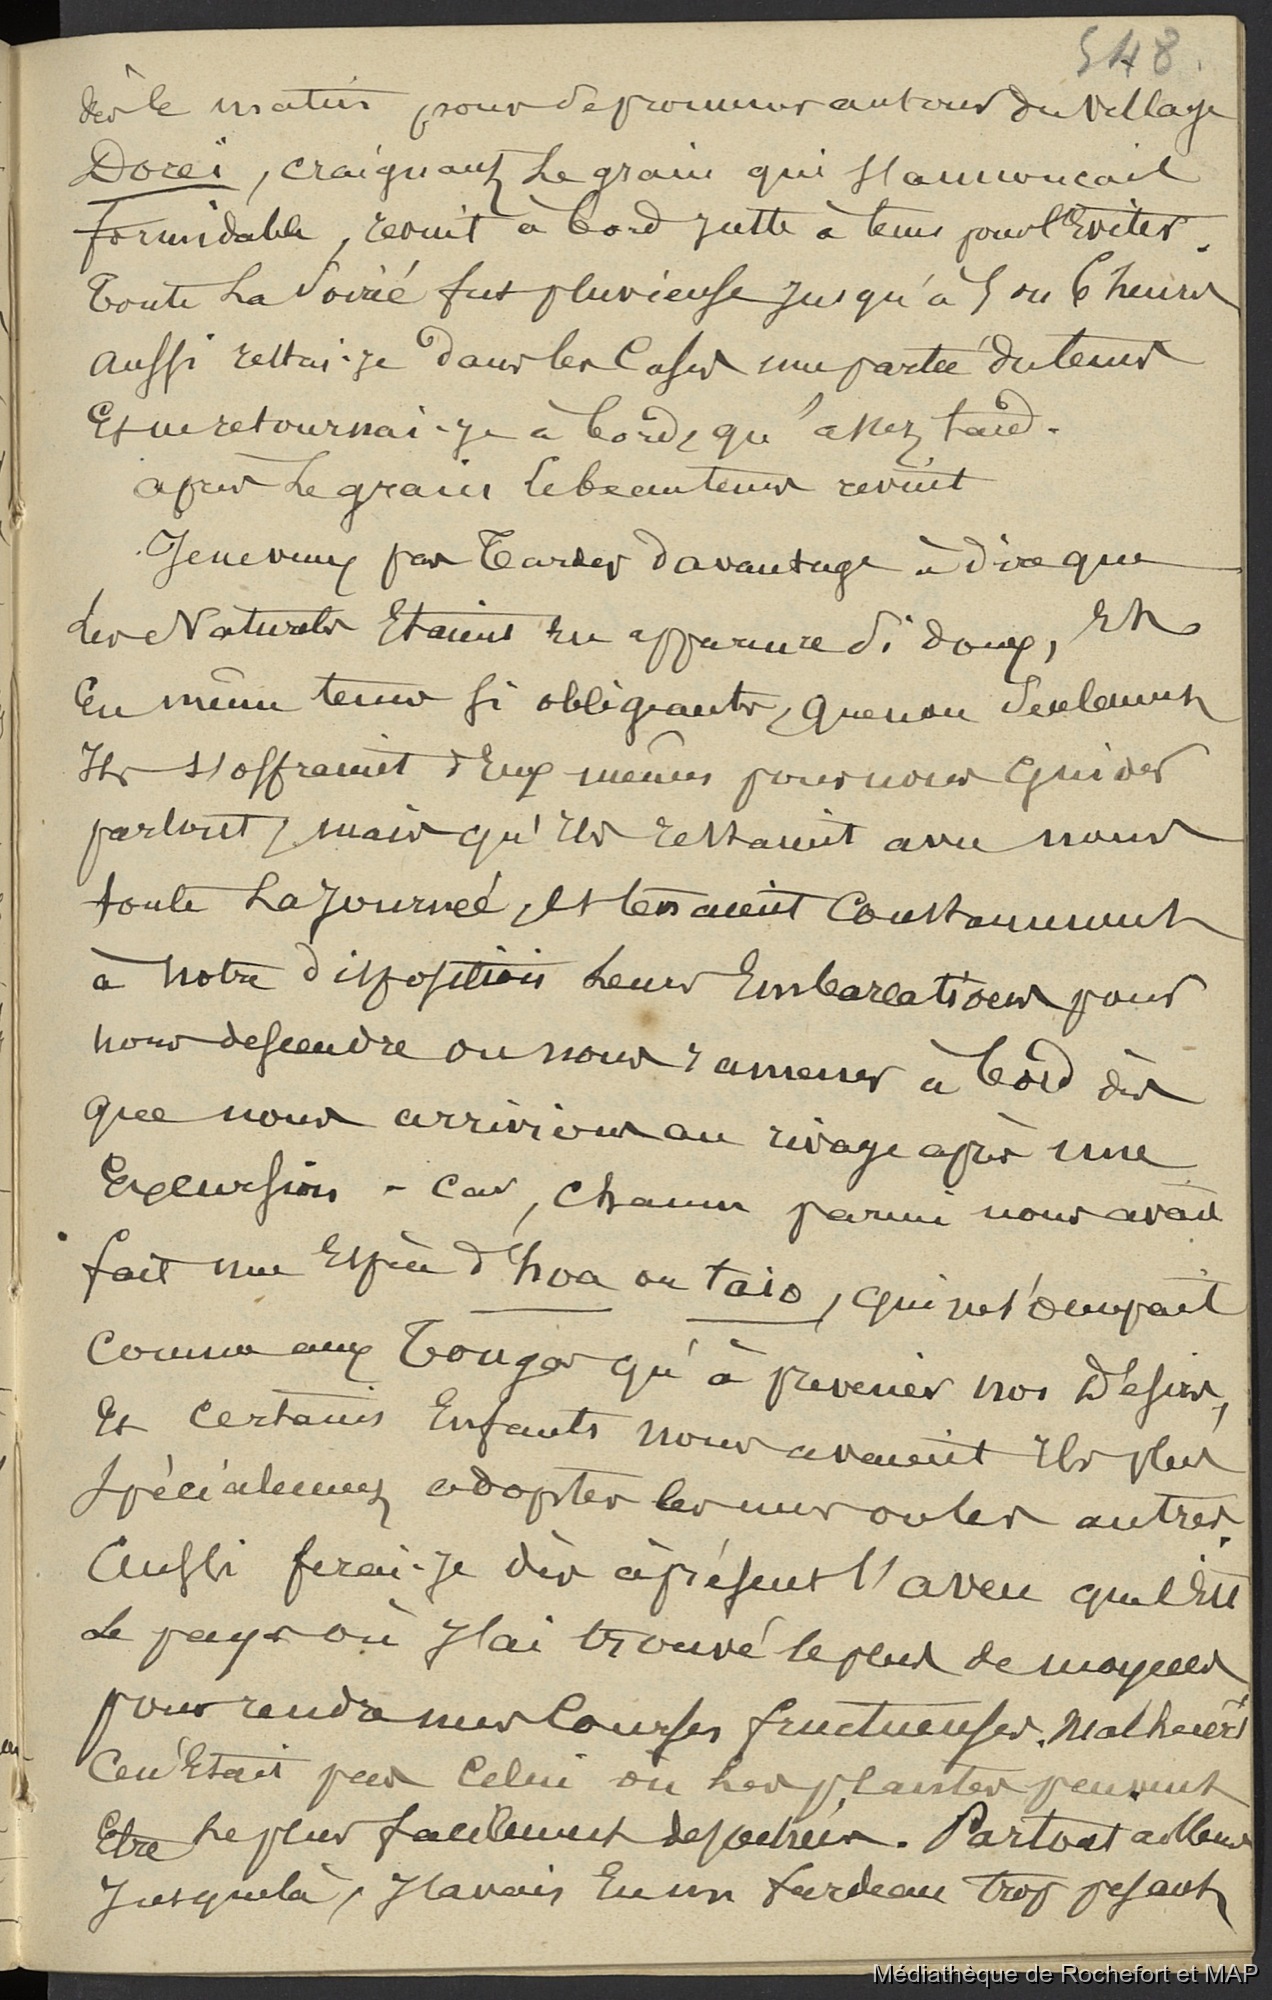 548.
dès le matin pour se promener autour du village
Dorei, craignant le grain qui s'annonçait
formidable, revint à bord juste à tems pour l'Eviter.
Toute la Soireé fut pluvieuse jusqu'à 5 ou 6 heures
aussi restai-je dans les Cases une partie du tems
Et ne retournai-je à bord, qu'assez tard.
après le grain le beau tems revint
Je ne veux pas Tarder davantage à dire que
les Naturels Etaient en apparence si doux, Et
En même tems si obligeants, que non seulement
Ils s'offraient d'Eux mêmes pour nous Guider
partout, mais qu'Ils restaient avec nous
toute la journeé, et tenaient Constamment
à notre disposition leurs Embarcations pour
nous descendre ou nous ramener à bord dès
que nous arrivions au rivage après une
Excursion - car, chacun parmi nous avait
fait une Espèce d'hoa ou taio, qui ne s'occupait
comme aux Tongas qu'à prevenir nos Desirs,
Et certains Enfants nous avaient Ils plus
spécialement adopter les uns ou les autres.
Aussi ferai-je dès àprésent l'aveu que c'Est
le pays où J'ai trouvé le plus de moyens
pour rendre mes Courses fructueuses. Malheurt
Ce n'Etait pas Celui où les plantes peuvent
Etre le plus facilement desséchées. Partout ailleurs
Jusquelà, J'avais Eu un fardeau trop pesant
Médiathèque de Rochefort et MAP